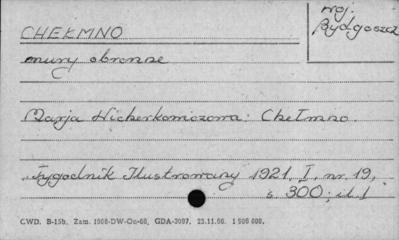 woj.
Bydgoszcz
CHEŁMNO
mury obronne
Marja Wicherkiewiczowa: Chełmno.
Tygodnik Ilustrowany 1921, I, nr. 19,
s. 300; il. 1
CWD. B-15b. Zam. 1968-DW-Oa-66, GDA-3097. 23.11.66. 1 500 000.